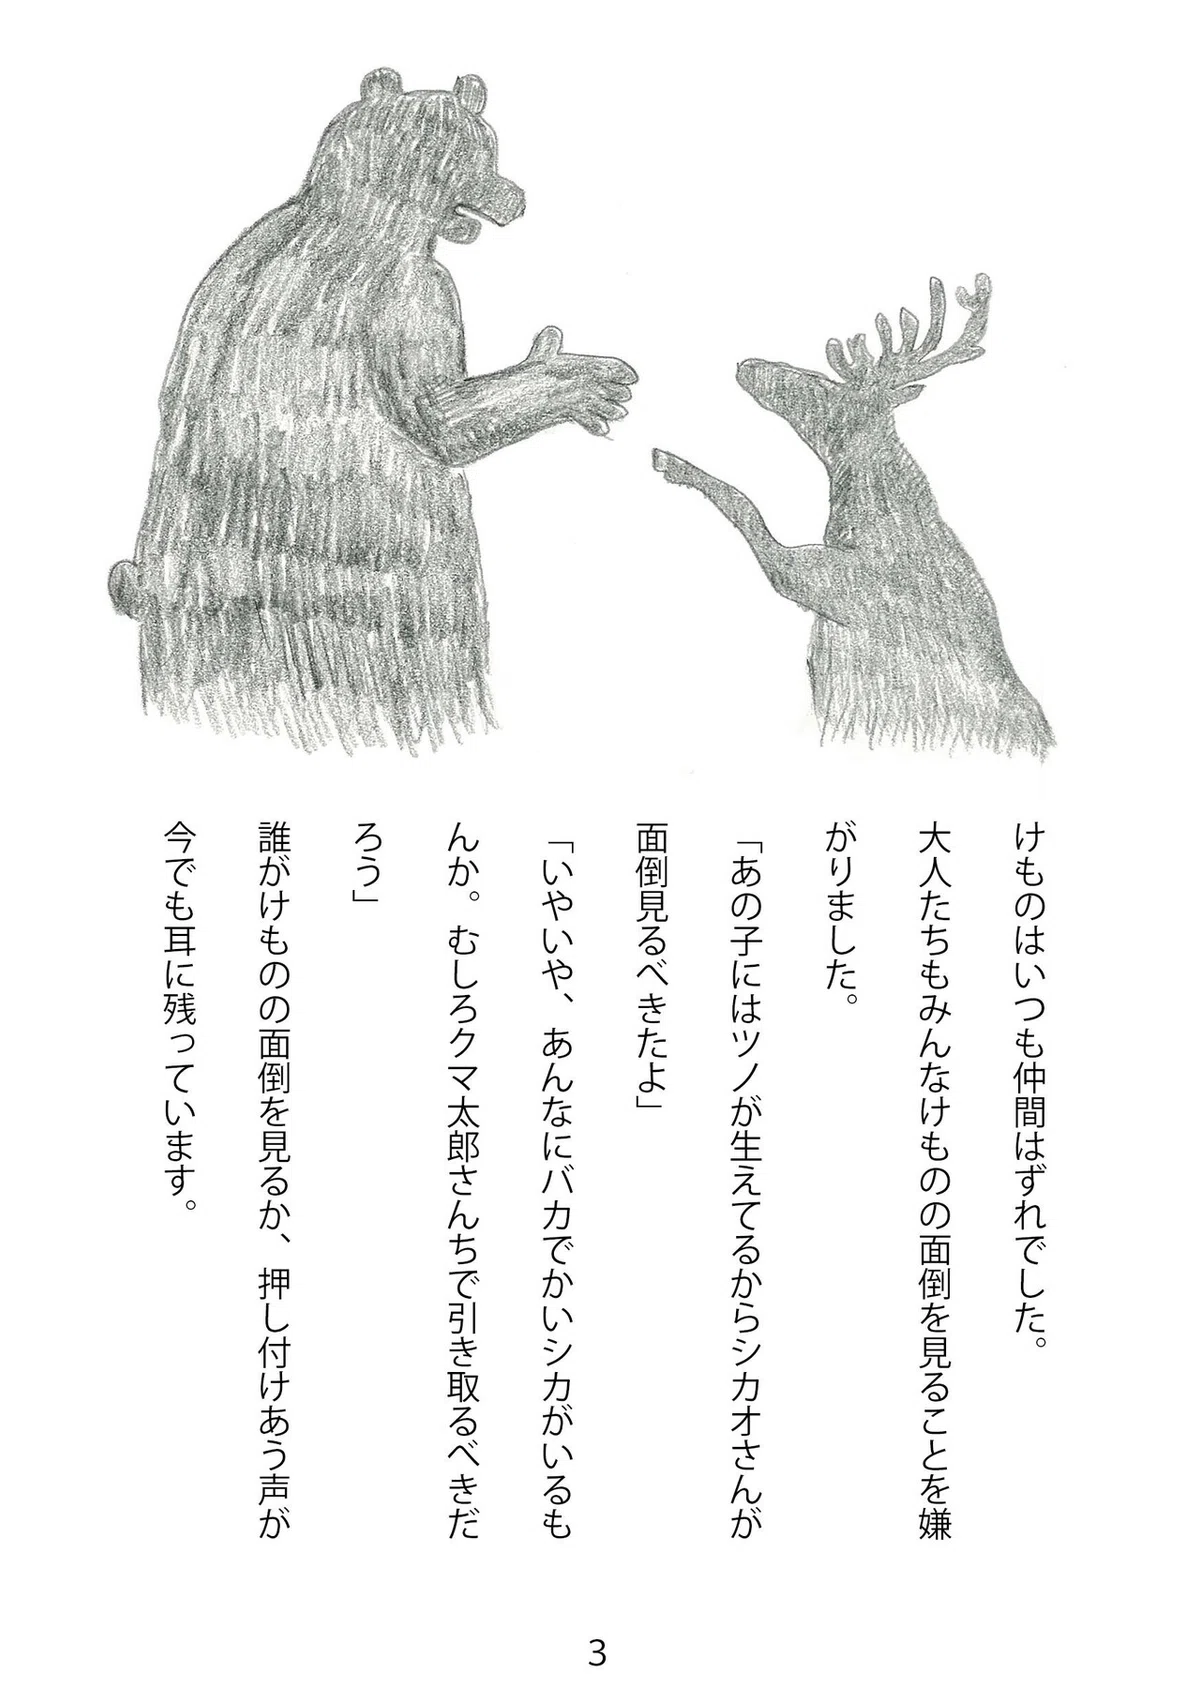 けものはいつも仲間はずれでした。
大人たちもみんなけものの面倒を見ることを嫌
がりました。
「あの子にはツノが生えてるからシカオさんが
面倒見るべきたよ」
「いやいや、あんなにバカでかいシカがいるも
んか。むしろクマ太郎さんちで引き取るべきだ
ろう」
誰がけものの面倒を見るか、押し付けあう声が
今でも耳に残っています。
3